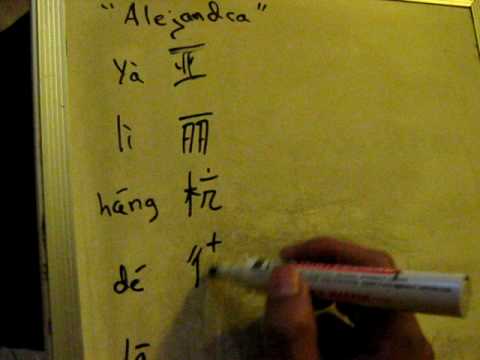 "Alejandra"
Yà 亚
lì 丽
háng 杭
dé
lā